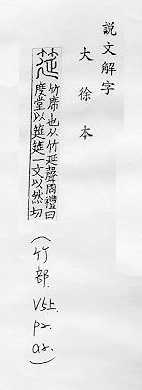 説文解字
大徐本
筵 竹席也从竹延聲周禮曰
度堂以筵筵一丈以然切
(竹部. V5上. P2. a2.)